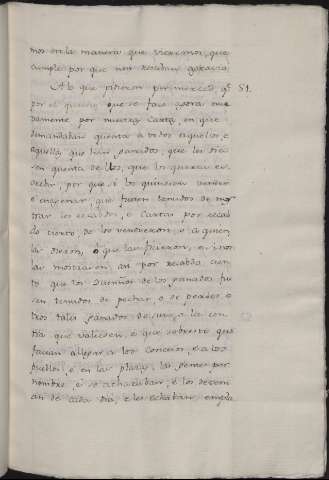 mos en la manera que viéremos, que
cumple por que non resciban agravio.
A lo que pidieron por merced, q.e 51.
por el que se face agora nue
vamente por nuestra carta en que
demandaban quenta a todos aquellos, e
aquellas que han ganados, que les die
sen quenta de ellos, que los querian ven
der, por que si los quisieran vender
o enagenar, que fuesen tenudos de mos
trar los recados, e cartas por recab
do cierto, de los vendieron, e a quien
las dieron, o que las ficieron, e si no
las mostraren, así por recabdo cier
to que los dueños de los ganados fu
sen tenudos de pechar, e de perder o
tros tales ganados de suyo, o la con
tia que valiesen, e que sobresto que
facian allegar a los concejos, e a los
pueblos, e en las plazas, las penas por
nombre, e se achacaban, e los decian
an de cada dia, e les echaban, emplà